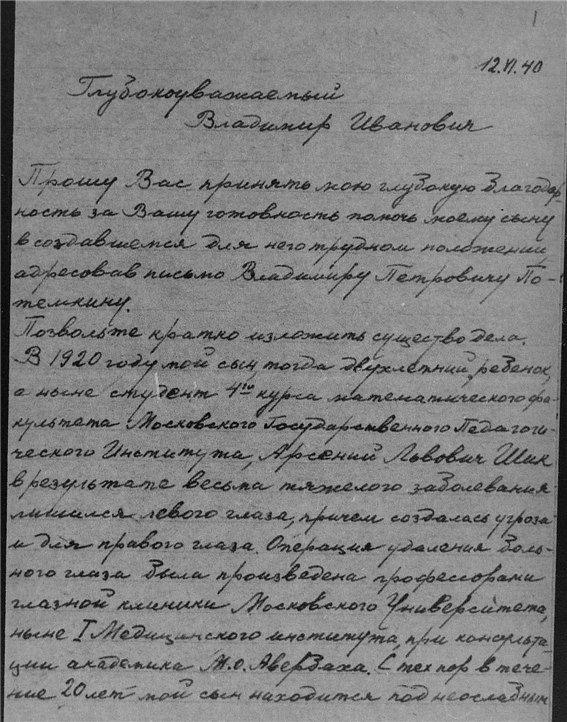 1
12.VI.40
Глубокоуважаемый
Владимир Иванович
Прошу Вас принять мою глубокую благодар-
ность за Вашу готовность помочь моему сыну
в создавшемся для него трудном положении,
адресовав письмо Владимиру Петровичу По-
темкину.
Позвольте кратко изложить существо дела.
В 1920 году мой сын, тогда двухлетний ребенок,
а ныне студент 4го курса математического фа-
культета Московского Государственного Педагоги-
ческого Института, Арсений Львович Шик
в результате весьма тяжелого заболевания
лишился левого глаза, причем создалась угроза
и для правого глаза. Операция удаления боль-
ного глаза была произведена профессорами
глазной клиники Московского Университета,
ныне I Медицинского института, при консульта-
ции академика М.О. Авербаха. С тех пор в тече-
ние 20 лет мой сын находится под неослабным